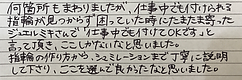 何箇所もまわりましたが、仕事中でも付けられる
指輪が見つからず困っていた時にたまたま寄った
ジュエルミキさんで「仕事中でも付けてOKです」と
言って頂き、ここしかないなと思いました。
指輪の作り方から、シミュレーションまで丁寧に説明
して下さり、ここを選んで良かったなと思いました。